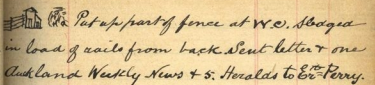 Put up part of fence at W.C. Sledged
in load of rails from back. Sent letter & one
Auckland Weekly News & 5. Heralds to Perry.